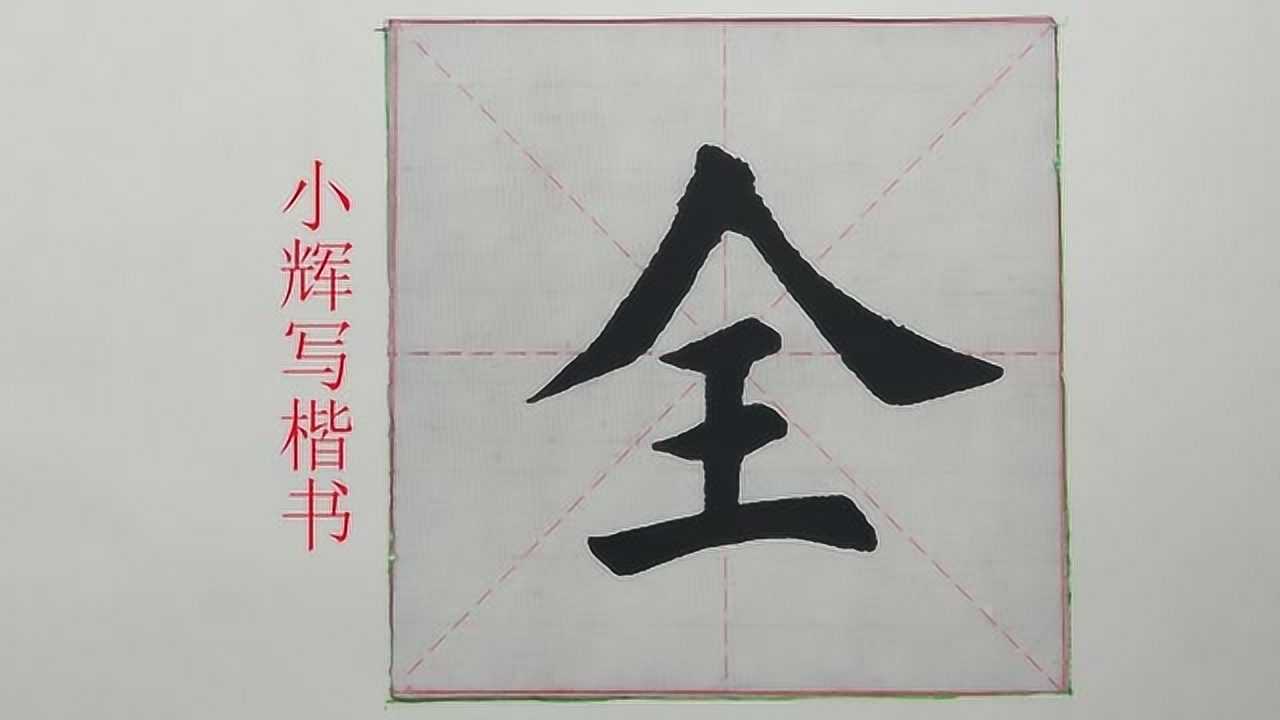 小辉写楷书
全